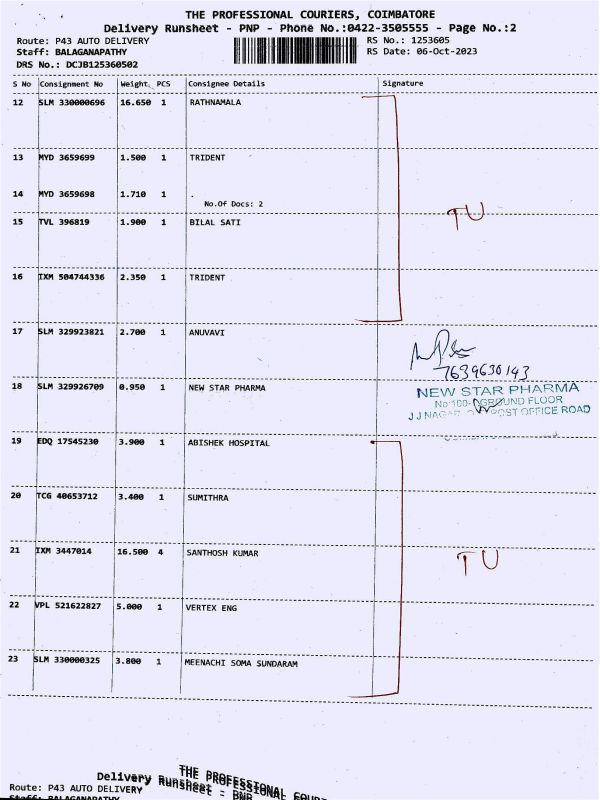 THE PROFESSIONAL COURIERS, COIMBATORE
Delivery Runsheet - PNP - Phone No.:0422-3505555 - Page No.:2
Route: P43 AUTO DELIVERY
RS No.: 1253605
Staff: BALAGANAPATHY
RS Date: 06-Oct-2023
DRS No.: DCJB125360502
S No Consignment No Weight PCS Consignee Details Signature
12 SLM 330000696 16.650 1 RATHNAMALA
13 MYD 3659699 1.500 1 TRIDENT
14 MYD 3659698 1.710 1 .
No.Of Docs: 2
TU
15 TVL 396819 1.900 1 BILAL SATI
16 IXM 504744336 2.350 1 TRIDENT
17 SLM 329923821 2.700 1 ANUVAVI
7639630143
18 SLM 329926709 0.950 1 NEW STAR PHARMA
NEW STAR PHARMA
GROUND FLOOR
POST OFFICE ROAD
19 EDQ 17545230 3.900 1 ABISHEK HOSPITAL
20 TCG 40653712 3.400 1 SUMITHRA
21 IXM 3447014 16.500 4 SANTHOSH KUMAR
TU
22 VPL 521622827 5.000 1 VERTEX ENG
23 SLM 330000325 3.800 1 MEENACHI SOMA SUNDARAM
THE PROFESSIONAL COUR
Delivery Runsheet - PNP
Route: P43 AUTO DELIVERY
Staff: BALAGANAPATHY